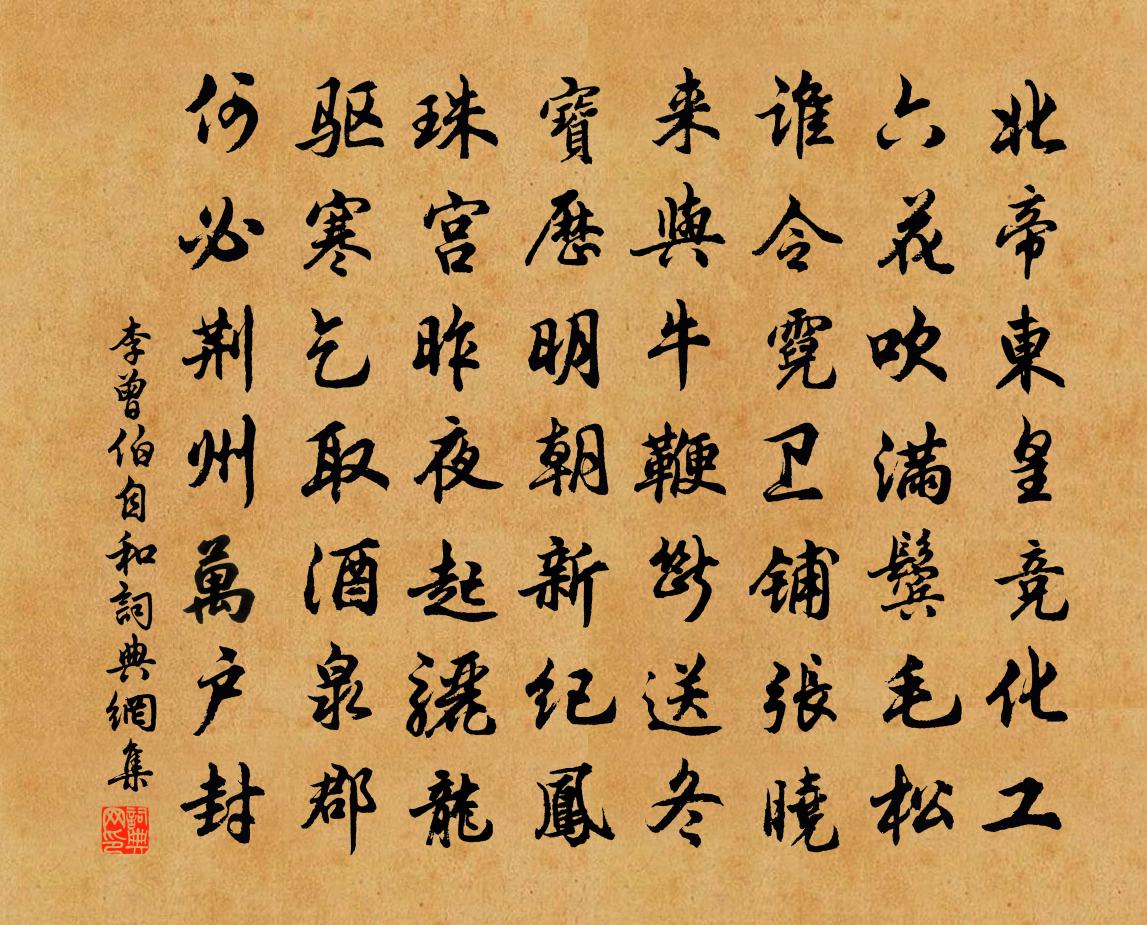 北帝東皇竞化工
六花吹满鬓毛松
谁令霓卫铺張曉
来與牛鞭斷送冬
寶歷明朝新纪鳳
珠宫昨夜起骊龍
驱寒乞取酒泉郡
何必荆州萬户封
李曾伯自和詞典網集
詞典网印